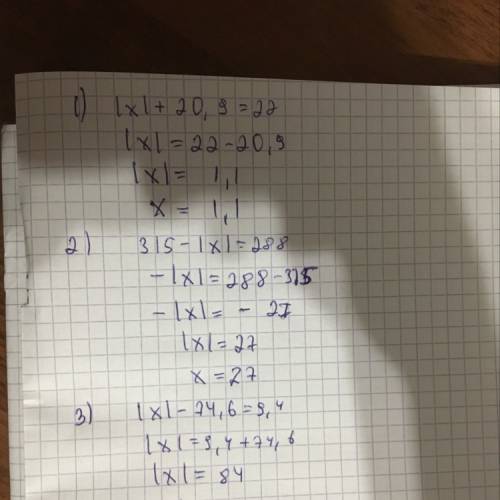 1) |x| + 20,9 = 22
|x| = 22 - 20,9
|x| = 1,1
x = 1,1
2) 315 - |x| = 288
- |x| = 288 - 315
- |x| = - 27
|x| = 27
x = 27
3) |x| - 74,6 = 9,4
|x| = 9,4 + 74,6
|x| = 84